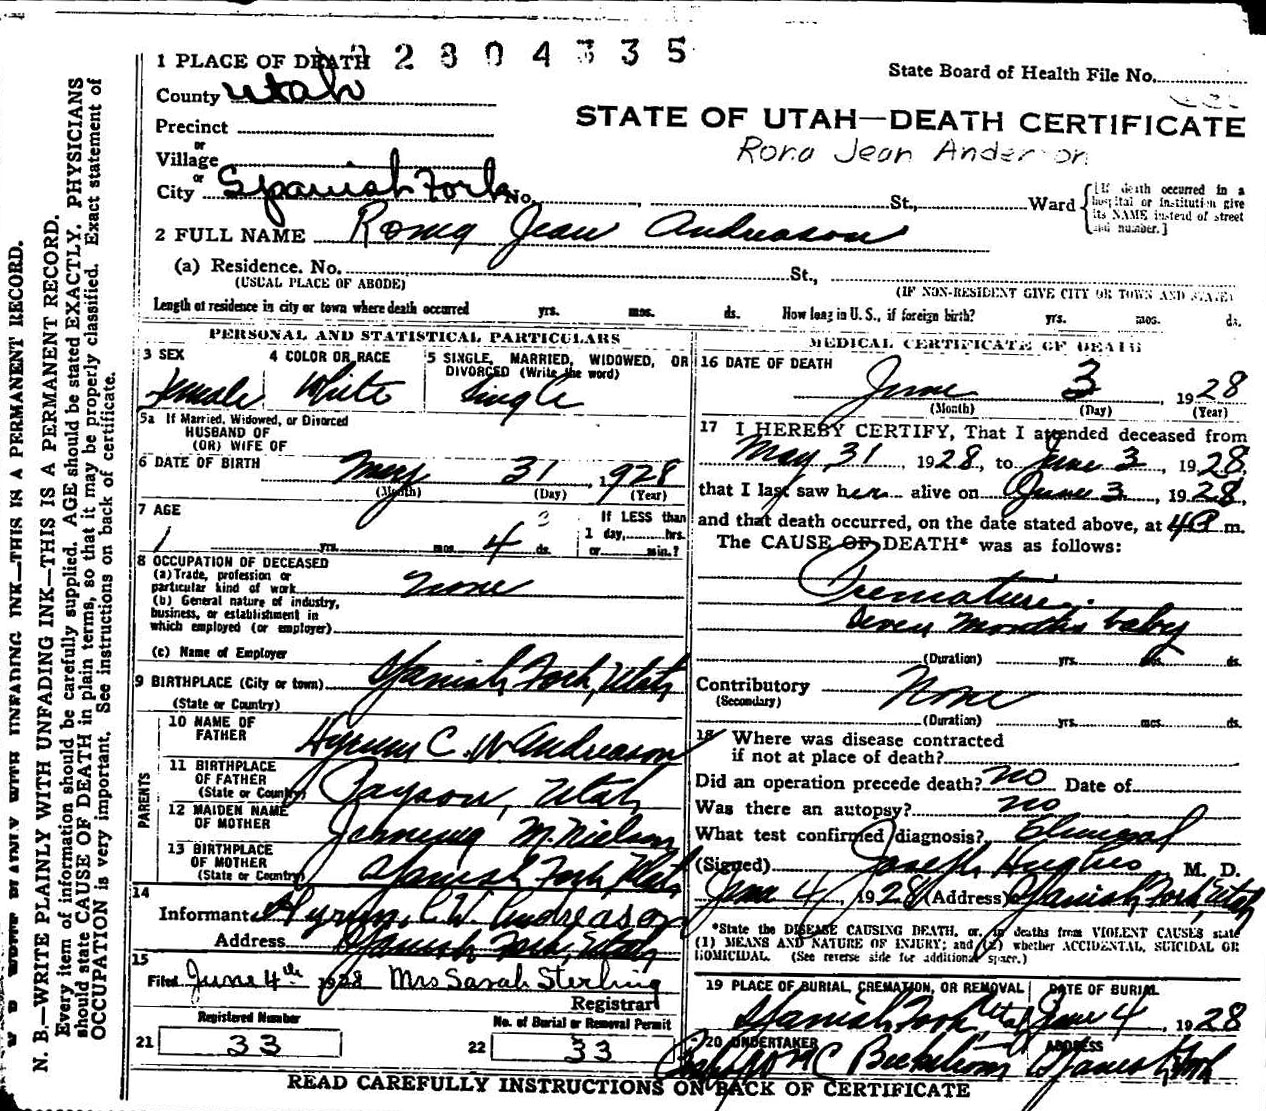 2804335
1 PLACE OF DEATH
State Board of Health File No.
County Utah
STATE OF UTAH—DEATH CERTIFICATE
Precinct
Rona Jean Anderson
or
Village
or
City Spanish Fork No. St., Ward
[If death occurred in a hospital or institution give its NAME instead of street and number.]
2 FULL NAME Rona Jean Andreason
(a) Residence. No. St.,
(USUAL PLACE OF ABODE)
(IF NON-RESIDENT GIVE CITY OR TOWN AND STATE)
Length of residence in city or town where death occurred yrs. mos. ds. How long in U. S., if foreign birth? yrs. mos. ds.
PERSONAL AND STATISTICAL PARTICULARS
3 SEX
Female
4 COLOR OR RACE
White
5 SINGLE, MARRIED, WIDOWED, OR
DIVORCED (Write the word)
Single
5a If Married, Widowed, or Divorced
HUSBAND OF
(OR) WIFE OF
6 DATE OF BIRTH May 31, 1928
(Month) (Day) (Year)
7 AGE
3
If LESS than
1 day, hrs.
yrs. mos. 4 ds. or min.?
8 OCCUPATION OF DECEASED
(a) Trade, profession or
particular kind of work none
(b) General nature of industry,
business, or establishment in
which employed (or employer)
(c) Name of Employer
9 BIRTHPLACE (City or town) Spanish Fork, Utah
(State or Country)
PARENTS
10 NAME OF
FATHER Hyrum C. W Andreason
11 BIRTHPLACE
OF FATHER
(State or Country) Payson, Utah
12 MAIDEN NAME
OF MOTHER M. Nielson
13 BIRTHPLACE
OF MOTHER
(State or Country) Spanish Fork, Utah
14
Informant Hyrum C. W. Andreason
Address Spanish Fork, Utah
15
Filed June 4th 1928 Mrs Sarah Sterling
Registrar
Registered Number
No. of Burial or Removal Permit
21 33
22 33
MEDICAL CERTIFICATE OF DEATH
16 DATE OF DEATH
June 3 1928
(Month) (Day) (Year)
17 I HEREBY CERTIFY, That I attended deceased from
May 31, 1928, to June 3, 1928,
that I last saw her alive on June 3, 1928,
and that death occurred, on the date stated above, at 4P m.
The CAUSE OF DEATH* was as follows:
Premature.
seven months baby
(Duration) yrs. mos. ds.
Contributory None
(Secondary)
(Duration) yrs. mos. ds.
18 Where was disease contracted
if not at place of death?
Did an operation precede death? no Date of
Was there an autopsy? no
What test confirmed diagnosis?
(Signed) Joseph Hughes M. D.
June 4, 1928 (Address) Spanish Fork, Utah
*State the DISEASE CAUSING DEATH, or, in deaths from VIOLENT CAUSES state
(1) MEANS AND NATURE OF INJURY; and (2) whether ACCIDENTAL, SUICIDAL OR
HOMICIDAL. (See reverse side for additional space.)
19 PLACE OF BURIAL, CREMATION, OR REMOVAL
DATE OF BURIAL
Spanish Fork Utah June 4, 1928
20 UNDERTAKER
ADDRESS
Beckstrom Spanish Fork
READ CAREFULLY INSTRUCTIONS ON BACK OF CERTIFICATE
N. B.—WRITE PLAINLY WITH UNFADING INK—THIS IS A PERMANENT RECORD.
Every item of information should be carefully supplied. AGE should be stated EXACTLY. PHYSICIANS
should state CAUSE OF DEATH in plain terms, so that it may be properly classified. Exact statement of
OCCUPATION is very important. See instructions on back of certificate.